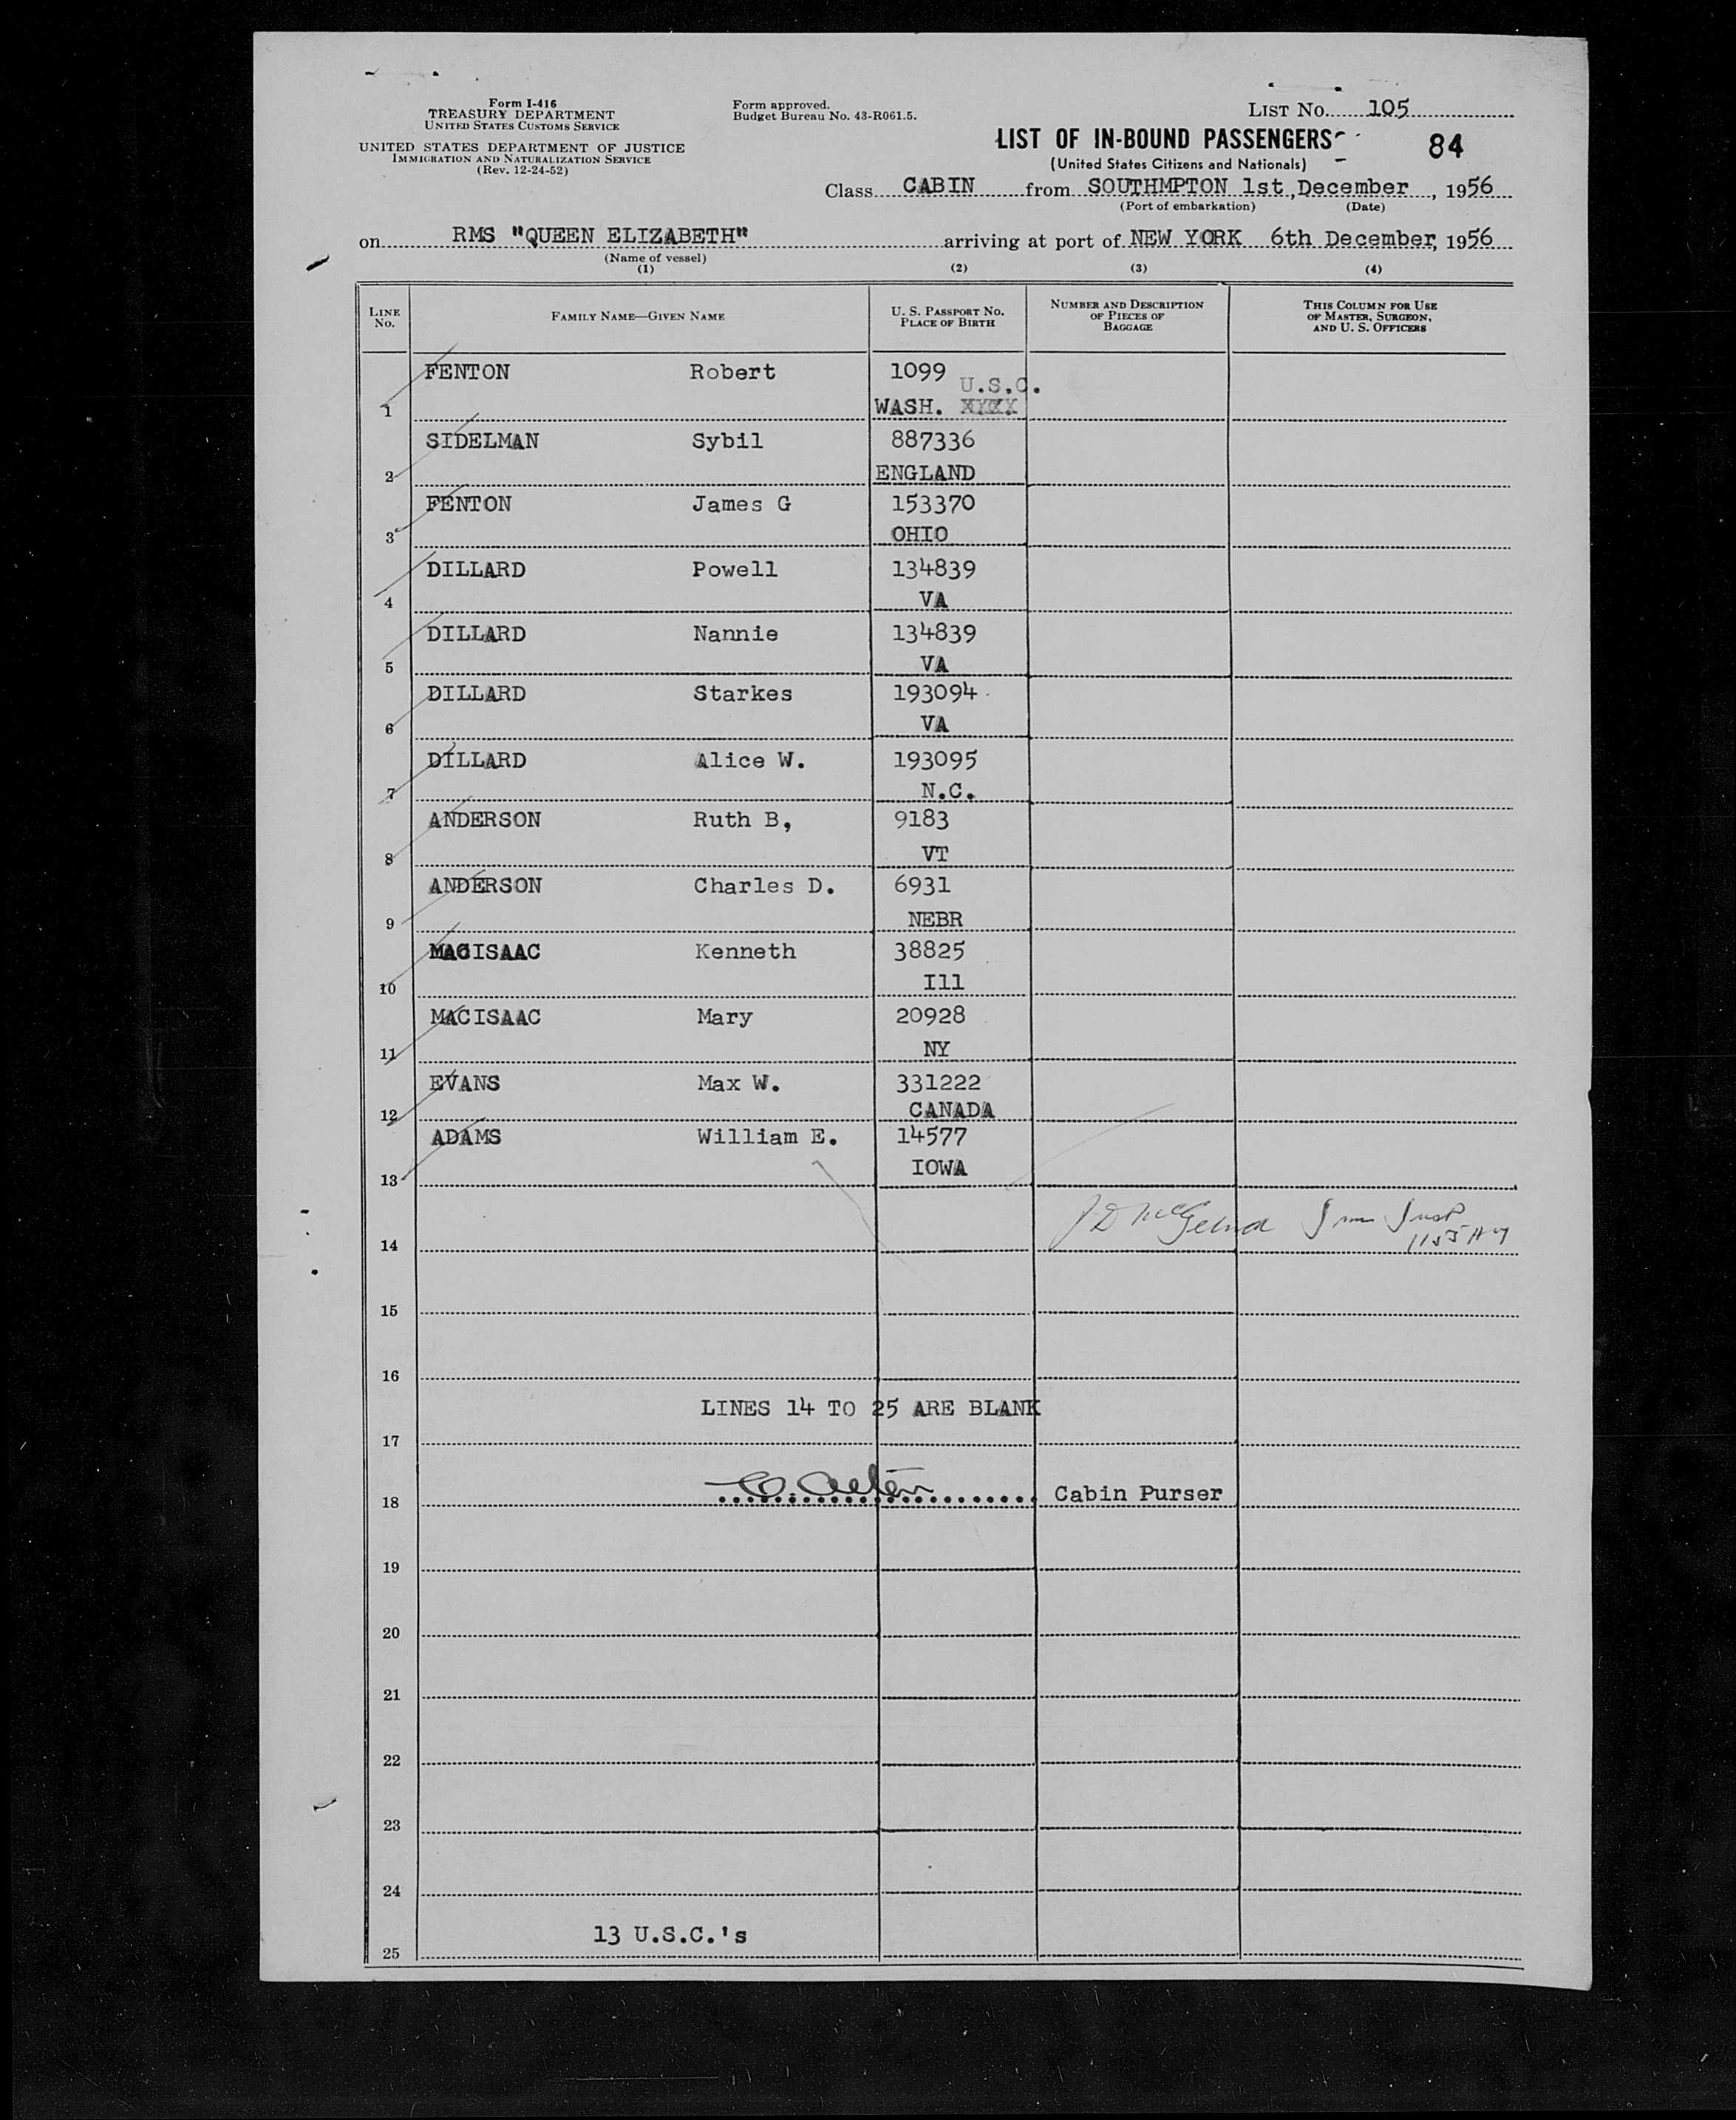 Form I-416
TREASURY DEPARTMENT
UNITED STATES CUSTOMS SERVICE
UNITED STATES DEPARTMENT OF JUSTICE
IMMIGRATION AND NATURALIZATION SERVICE
(Rev. 12-24-52)
Form approved.
Budget Bureau No. 43-R061.5.
LIST No. 105
LIST OF IN-BOUND PASSENGERS
84
(United States Citizens and Nationals)
Class CABIN from SOUTHMPTON 1st, December, 1956
(Port of embarkation) (Date)
on RMS "QUEEN ELIZABETH" arriving at port of NEW YORK 6th December, 1956
(Name of vessel)
(1) (2) (3) (4)
LINE No. FAMILY NAME—GIVEN NAME U. S. PASSPORT No. PLACE OF BIRTH NUMBER AND DESCRIPTION OF PIECES OF BAGGAGE THIS COLUMN FOR USE OF MASTER, SURGEON, AND U. S. OFFICERS
FENTON Robert 1099 U.S.C.
1 WASH.
SIDELMAN Sybil 887336
2 ENGLAND
FENTON James G 153370
3 OHIO
DILLARD Powell 134839
4 VA
DILLARD Nannie 134839
5 VA
DILLARD Starkes 193094
6 VA
DILLARD Alice W. 193095
7 N.C.
ANDERSON Ruth B, 9183
8 VT
ANDERSON Charles D. 6931
9 NEBR
MACISAAC Kenneth 38825
10 Ill
MACISAAC Mary 20928
11 NY
EVANS Max W. 331222
12 CANADA
ADAMS William E. 14577
13 IOWA
14
15
16
LINES 14 TO 25 ARE BLANK
17
18 Cabin Purser
19
20
21
22
23
24
13 U.S.C.'s
25